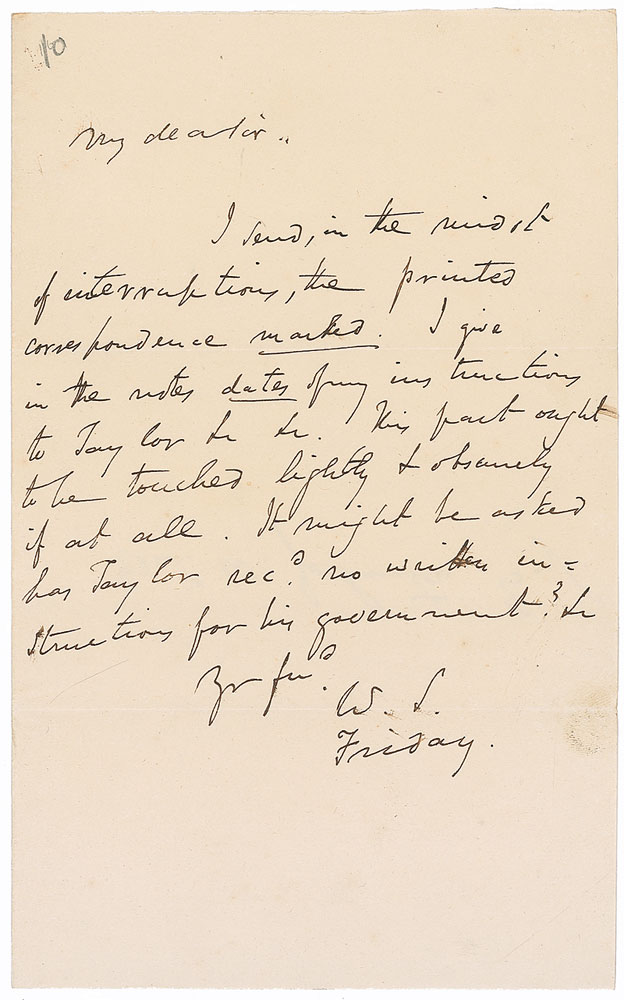 10
My dear Sir..
I send, in the midst
of interruptions, the printed
correspondence marked. I give
in the notes dates of my instructions
to Taylor &c &c. This part ought
to be touched lightly & obscurely
if at all. It might be asked
has Taylor recd. no written in=
structions for his government? &c
Yr frd.
W. S.
Friday.